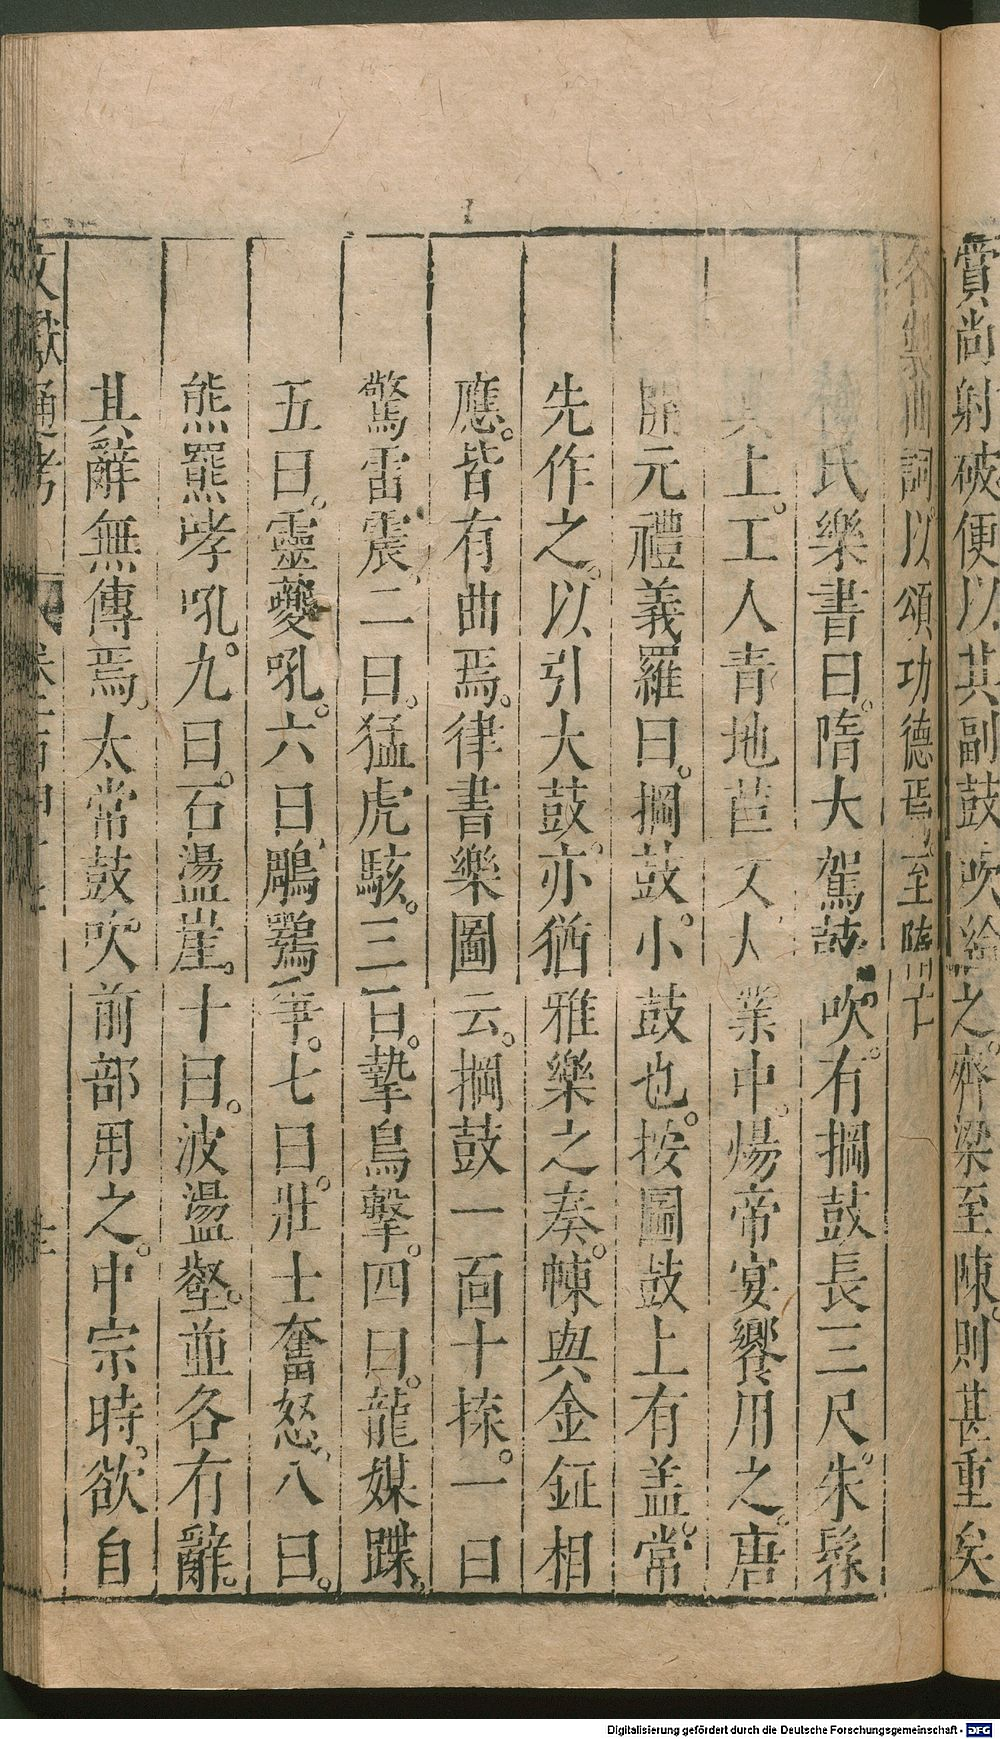 賞尚射破便以其副鼓吹給之齊梁至陳則甚重矣
各製曲詞以頌功德焉至隋亡
陳氏樂書曰隋大駕鼓吹有掆鼓長三尺朱髹
其上工人青地苣文大業中煬帝宴饗用之唐
開元禮義羅曰掆鼓小鼓也按圖鼓上有盖常
先作之以引大鼓亦猶雅樂之奏㡓與金鉦相
應皆有曲焉律書樂圖云掆鼓一面十㨍一曰
驚雷震二曰猛虎駭三曰摯鳥擊四曰龍媒蹀
五曰靈夔吼六曰鵰鶚爭七曰壯士奮怒八曰
熊羆哮吼九曰石盪崖十曰波盪壑並各有辭
其辭無傳焉太常鼓吹前部用之中宗時欲自
文獻通考 卷一百四十七
Digitalisierung gefördert durch die Deutsche Forschungsgemeinschaft - DFG